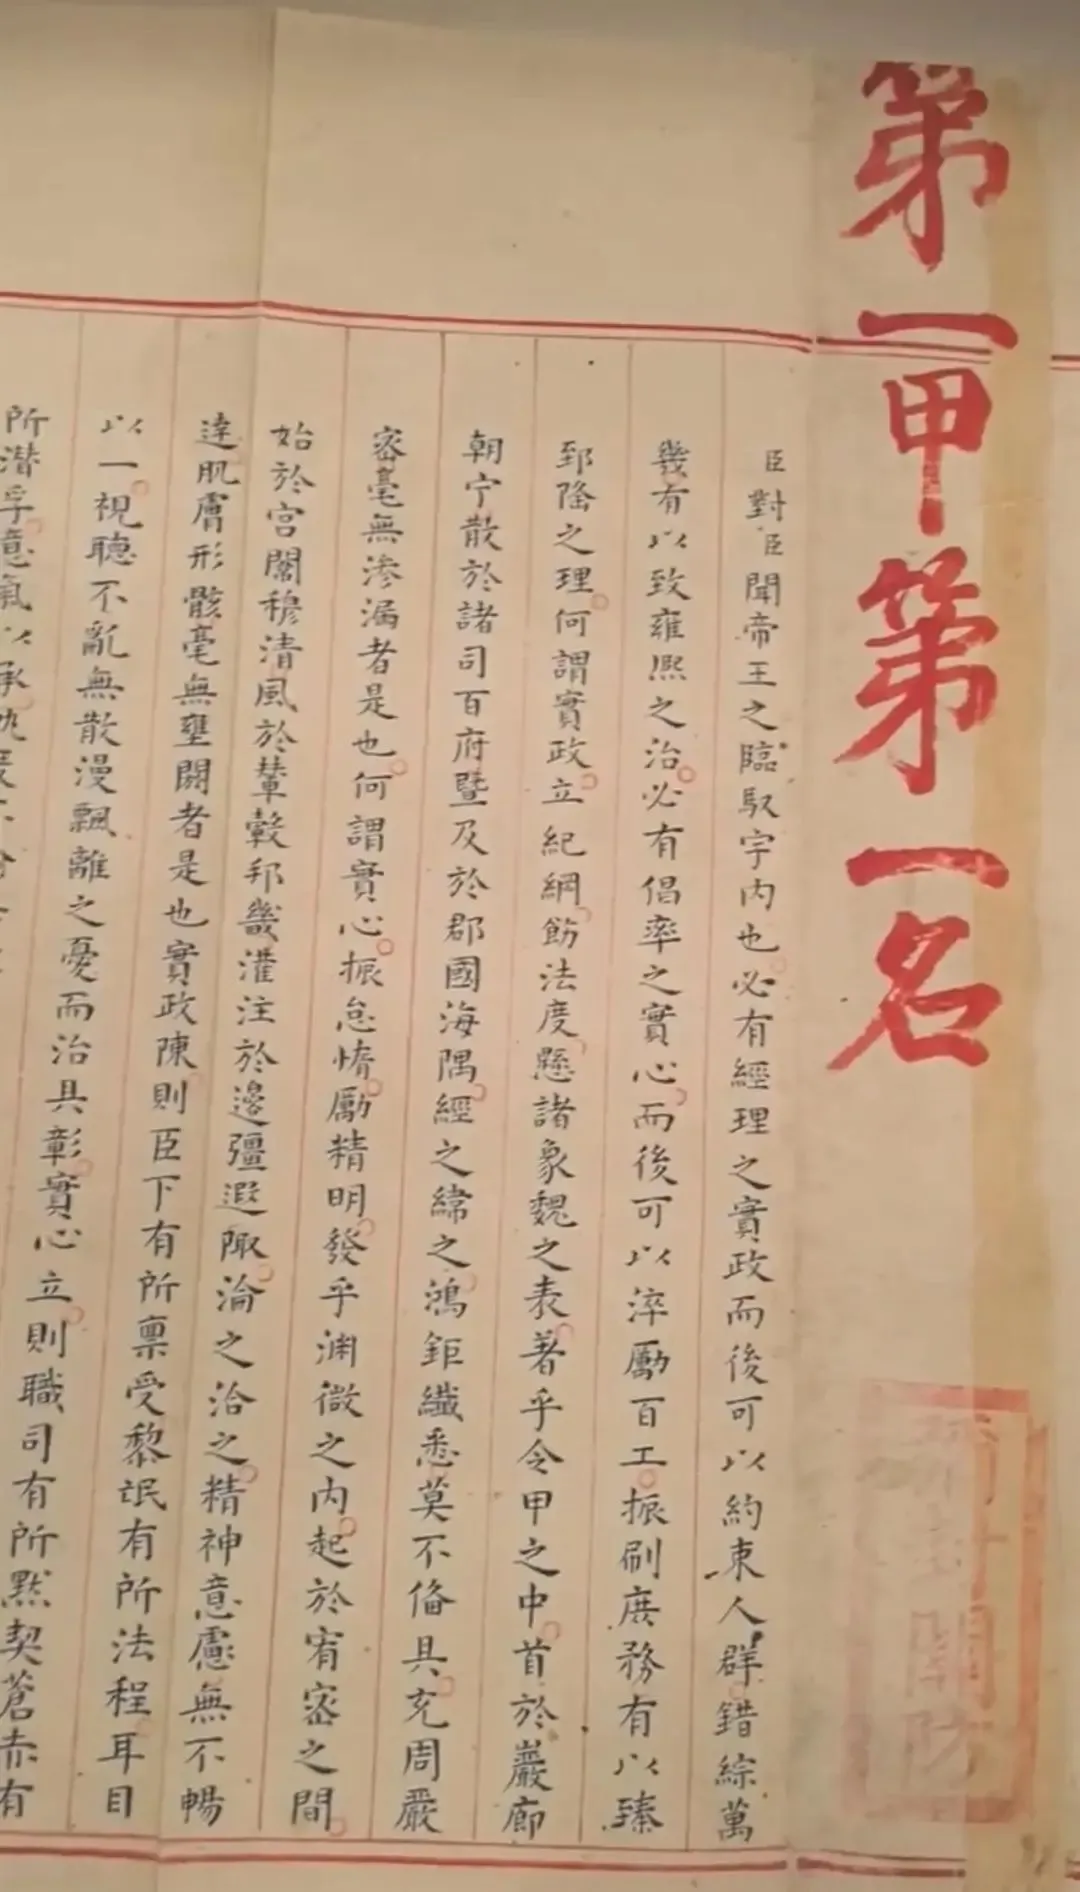 第一甲第一名
臣對臣聞帝王之臨馭宇內也必有經理之實政而後可以約束人群錯綜萬
幾有以致雍熙之治必有倡率之實心而後可以淬勵百工振刷庶務有以臻
郅隆之理何謂實政立紀綱飭法度懸諸象魏之表著乎令甲之中首於巖廊
朝宁散於諸司百府暨及於郡國海隅經之緯之鴻鉅纖悉莫不俻具充周嚴
密毫無滲漏者是也何謂實心振怠惰勵精明發乎淵微之內起於宥密之間
始於宮闈穆清風於輦轂邦畿灌注於邊彊遐陬淪之洽之精神意慮無不暢
達肌膚形骸毫無壅閼者是也實政陳則臣下有所稟受黎氓有所法程耳目
以一視聽不亂無散漫飄離之憂而治具彰實心立則職司有所默契蒼赤有
所潛孚意氣以承
關防